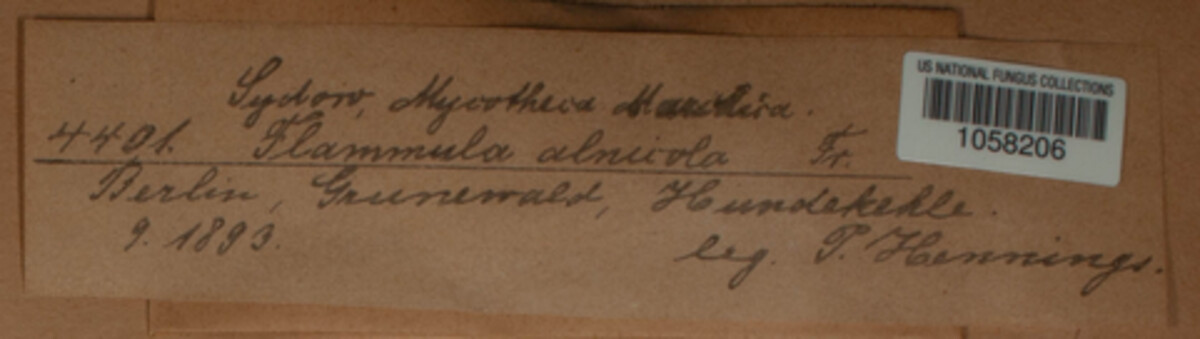 Sydow, Mycotheca Marchica.
4401. Flammula alnicola Fr.
Berlin, Grunewald, Hundekehle.
9. 1893.
leg. P. Hennings.
US NATIONAL FUNGUS COLLECTIONS
1058206